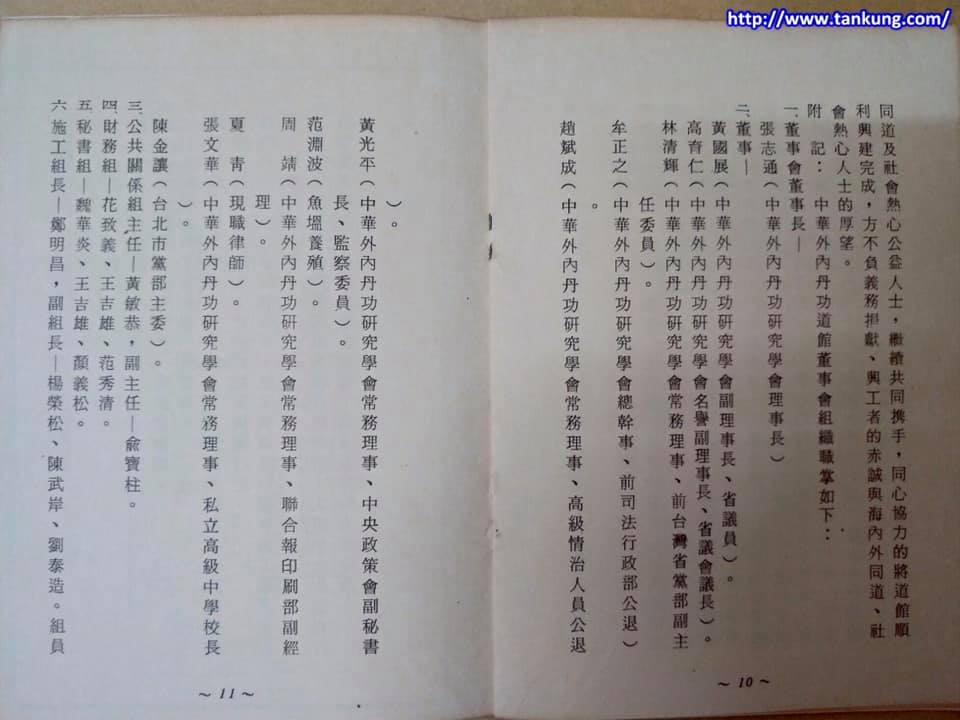 http://www.tankung.com/
同道及社會熱心公益人士，繼續共同携手，同心協力的將道館順
利興建完成，方不負義務捐獻、興工者的赤誠與海內外同道、社
會熱心人士的厚望。
附　記：中華外內丹功道館董事會組織職掌如下：
一、董事會董事長—
張志通（中華外內丹功研究學會理事長）
二、董事—
黃國展（中華外內丹功研究學會副理事長、省議員）。
高育仁（中華外內丹功研究學會名譽副理事長、省議會議長）。
林清輝（中華外內丹功研究學會常務理事、前台灣省黨部副主
任委員）。
牟正之（中華外內丹功研究學會總幹事、前司法行政部公退）
趙斌成（中華外內丹功研究學會常務理事、高級情治人員公退
。
～10～
）。
黃光平（中華外內丹功研究學會常務理事、中央政策會副秘書
長、監察委員）。
范淵波（魚塭養殖）。
周　靖（中華外內丹功研究學會常務理事、聯合報印刷部副經
理）。
夏　青（現職律師）。
張文華（中華外內丹功研究學會常務理事、私立高級中學校長
）。
陳金讓（台北市黨部主委）。
三、公共關係組主任—黃敏恭，副主任—俞寶柱。
四、財務組—花致義、王吉雄、范秀清。
五、秘書組—魏華炎、王吉雄、顏義松。
六、施工組長—鄭明昌，副組長—楊榮松、陳武岸、劉泰造。組員
～11～